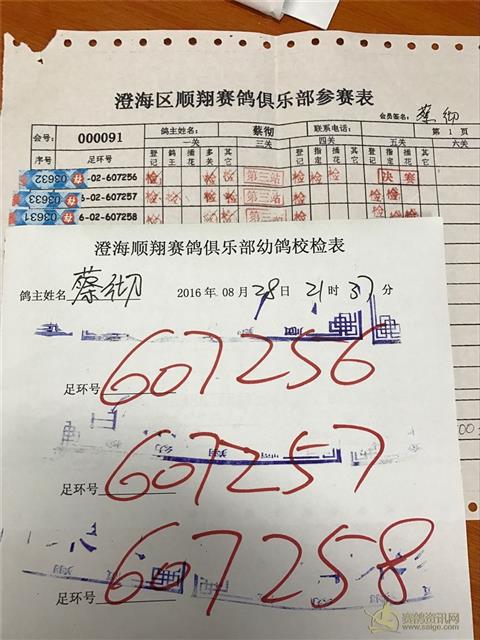 澄海区顺翔赛鸽俱乐部参赛表
会员签名: 蔡彻
会号: 000091 鸽主姓名: 蔡彻 联系电话: 第 1 页
一关 三关 四关 五关 六关
序号 足环号 登记 鸽王 插花 多关 其它 登记 指定 插花 其它 登记 指定 插花 其它
03632 6-02-607256 检 检 检 检 第三站 检 检 检 决赛
03633 6-02-607257 检 检 检 第三站 检 检
03631 6-02-607258 检 检 检 第三站 检 检
澄海顺翔赛鸽俱乐部幼鸽校检表
鸽主姓名 蔡彻 2016 年 08 月 28 日 21 时 37 分
足环号 607256
足环号 607257
足环号 607258
赛鸽资讯网
www.saige.com